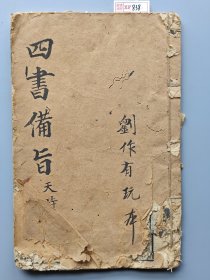 四書備旨
劉作有玩本